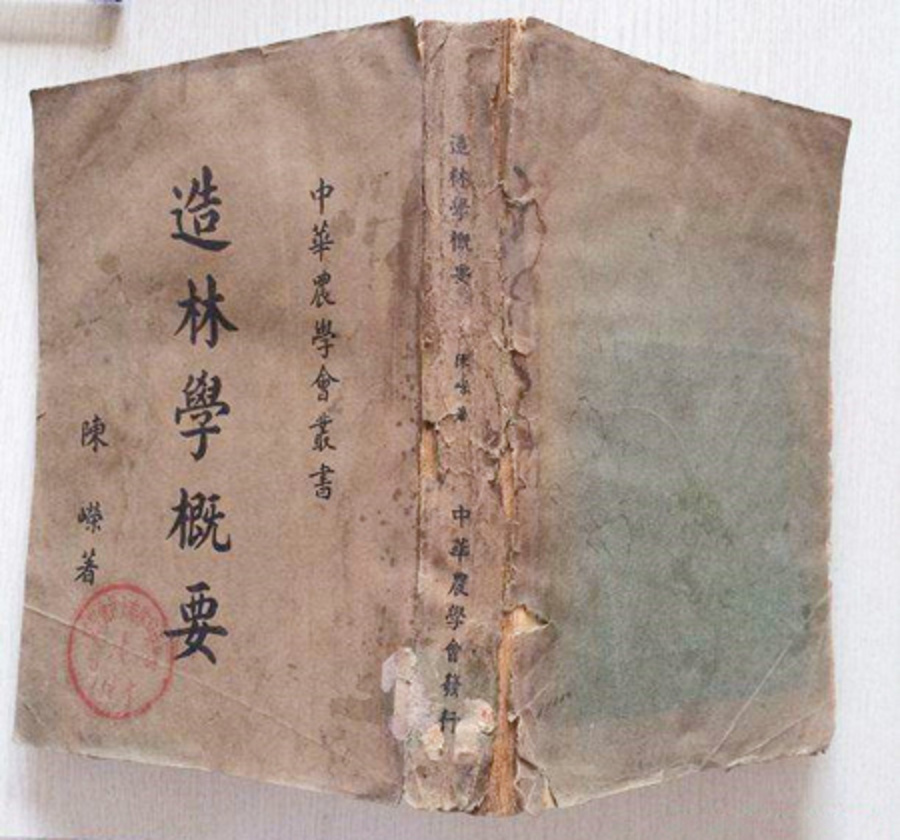 中華農學會叢書
造林學概要
陳嶸著
造林學概要
陳嶸著
中華農學會發行